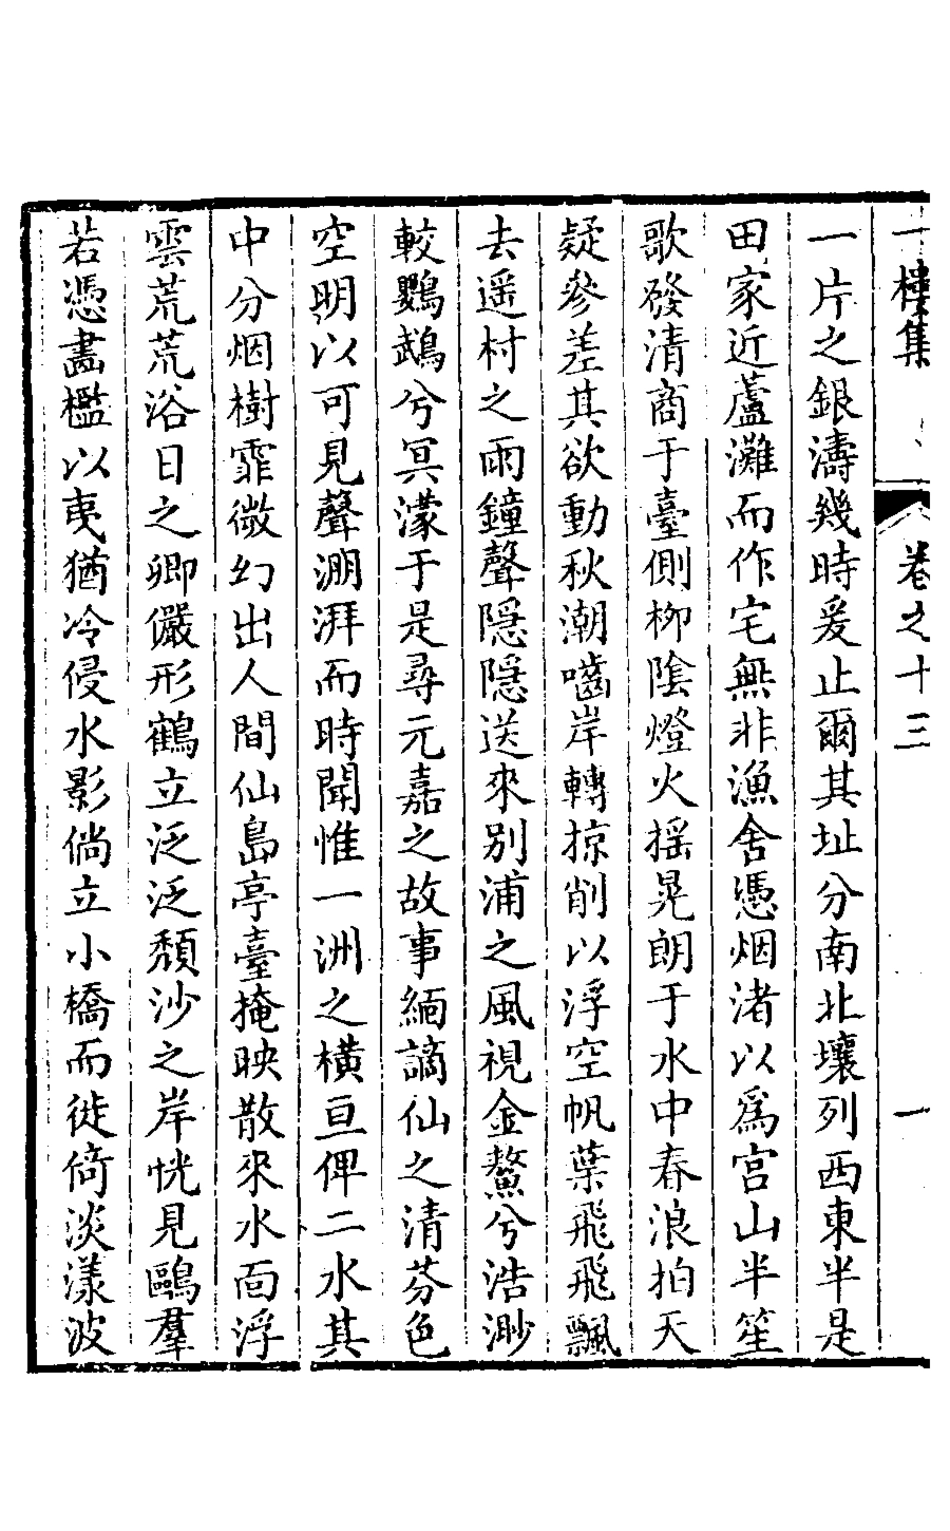 樓集 卷之十三 一
一片之銀濤幾時爰止爾其址分南北壤列西東半是
田家近蘆灘而作宅無非漁舍憑烟渚以爲宫山半笙
歌發清商于臺側柳陰燈火摇晃朗于水中春浪拍天
疑參差其欲動秋潮嚙岸轉掠削以浮空帆葉飛飛飄
去遥村之雨鐘聲隱隱送來别浦之風視金鰲兮浩渺
較鸚鵡兮冥濛于是尋元嘉之故事緬謫仙之清芬色
空明以可見聲淜湃而時聞惟一洲之横亘俾二水其
中分烟樹霏微幻出人間仙島亭臺掩映散來水面浮
雲荒荒浴日之卿儼形鶴立泛泛頽沙之岸恍見鷗羣
若憑畵檻以夷猶冷侵水影倘立小橋而徙倚淡漾波